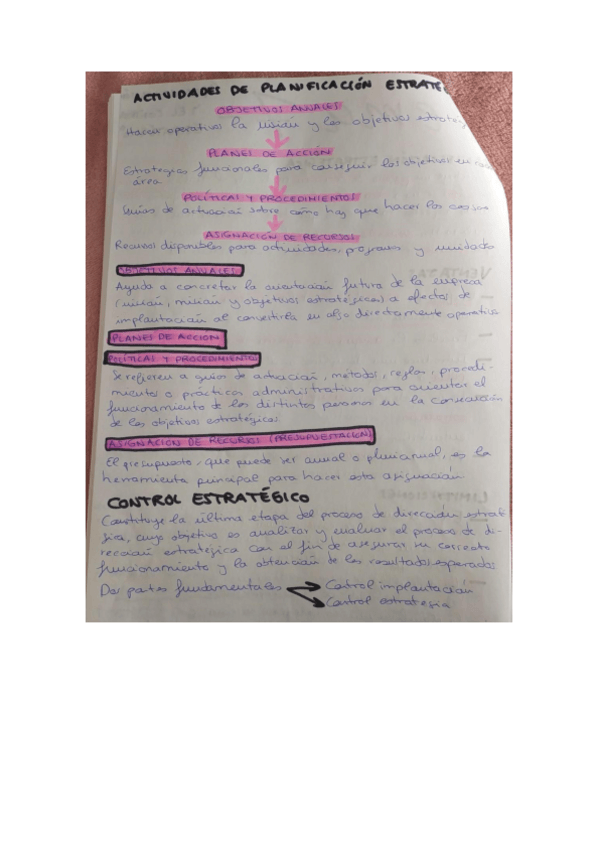 ACTIVIDADES DE PLANIFICACIÓN ESTRATÉ
OBJETIVOS ANUALES
Hacer operativos la misión y los objetivos estratég
PLANES DE ACCIÓN
Estrategias funcionales para conseguir los objetivos en cada
área.
POLÍTICAS Y PROCEDIMIENTOS
Guías de actuación sobre cómo hay que hacer las cosas
ASIGNACIÓN DE RECURSOS
Recursos disponibles para actividades, programas y unidades
OBJETIVOS ANUALES
Ayuda a concretar la orientación futura de la empresa
(visión, misión y objetivos estratégicos) a efectos de
implantación al convertirla en algo directamente operativo
PLANES DE ACCIÓN
POLÍTICAS Y PROCEDIMIENTO
Se refieren a guías de actuación, métodos, reglas, procedi-
mientos o prácticas administrativas para orientar el
funcionamiento de las distintas personas en la consecución
de los objetivos estratégicos.
ASIGNACIÓN DE RECURSOS (PRESUPUESTACIÓN)
El presupuesto, que puede ser anual o plurianual, es la
herramienta principal para hacer esta asignación
CONTROL ESTRATÉGICO
Constituye la última etapa del proceso de dirección estraté
gica, cuyo objetivo es analizar y evaluar el proceso de di-
rección estratégica con el fin de asegurar su correcto
funcionamiento y la obtención de los resultados esperados
Dos partes fundamentales
Control implantación
Control estrategia